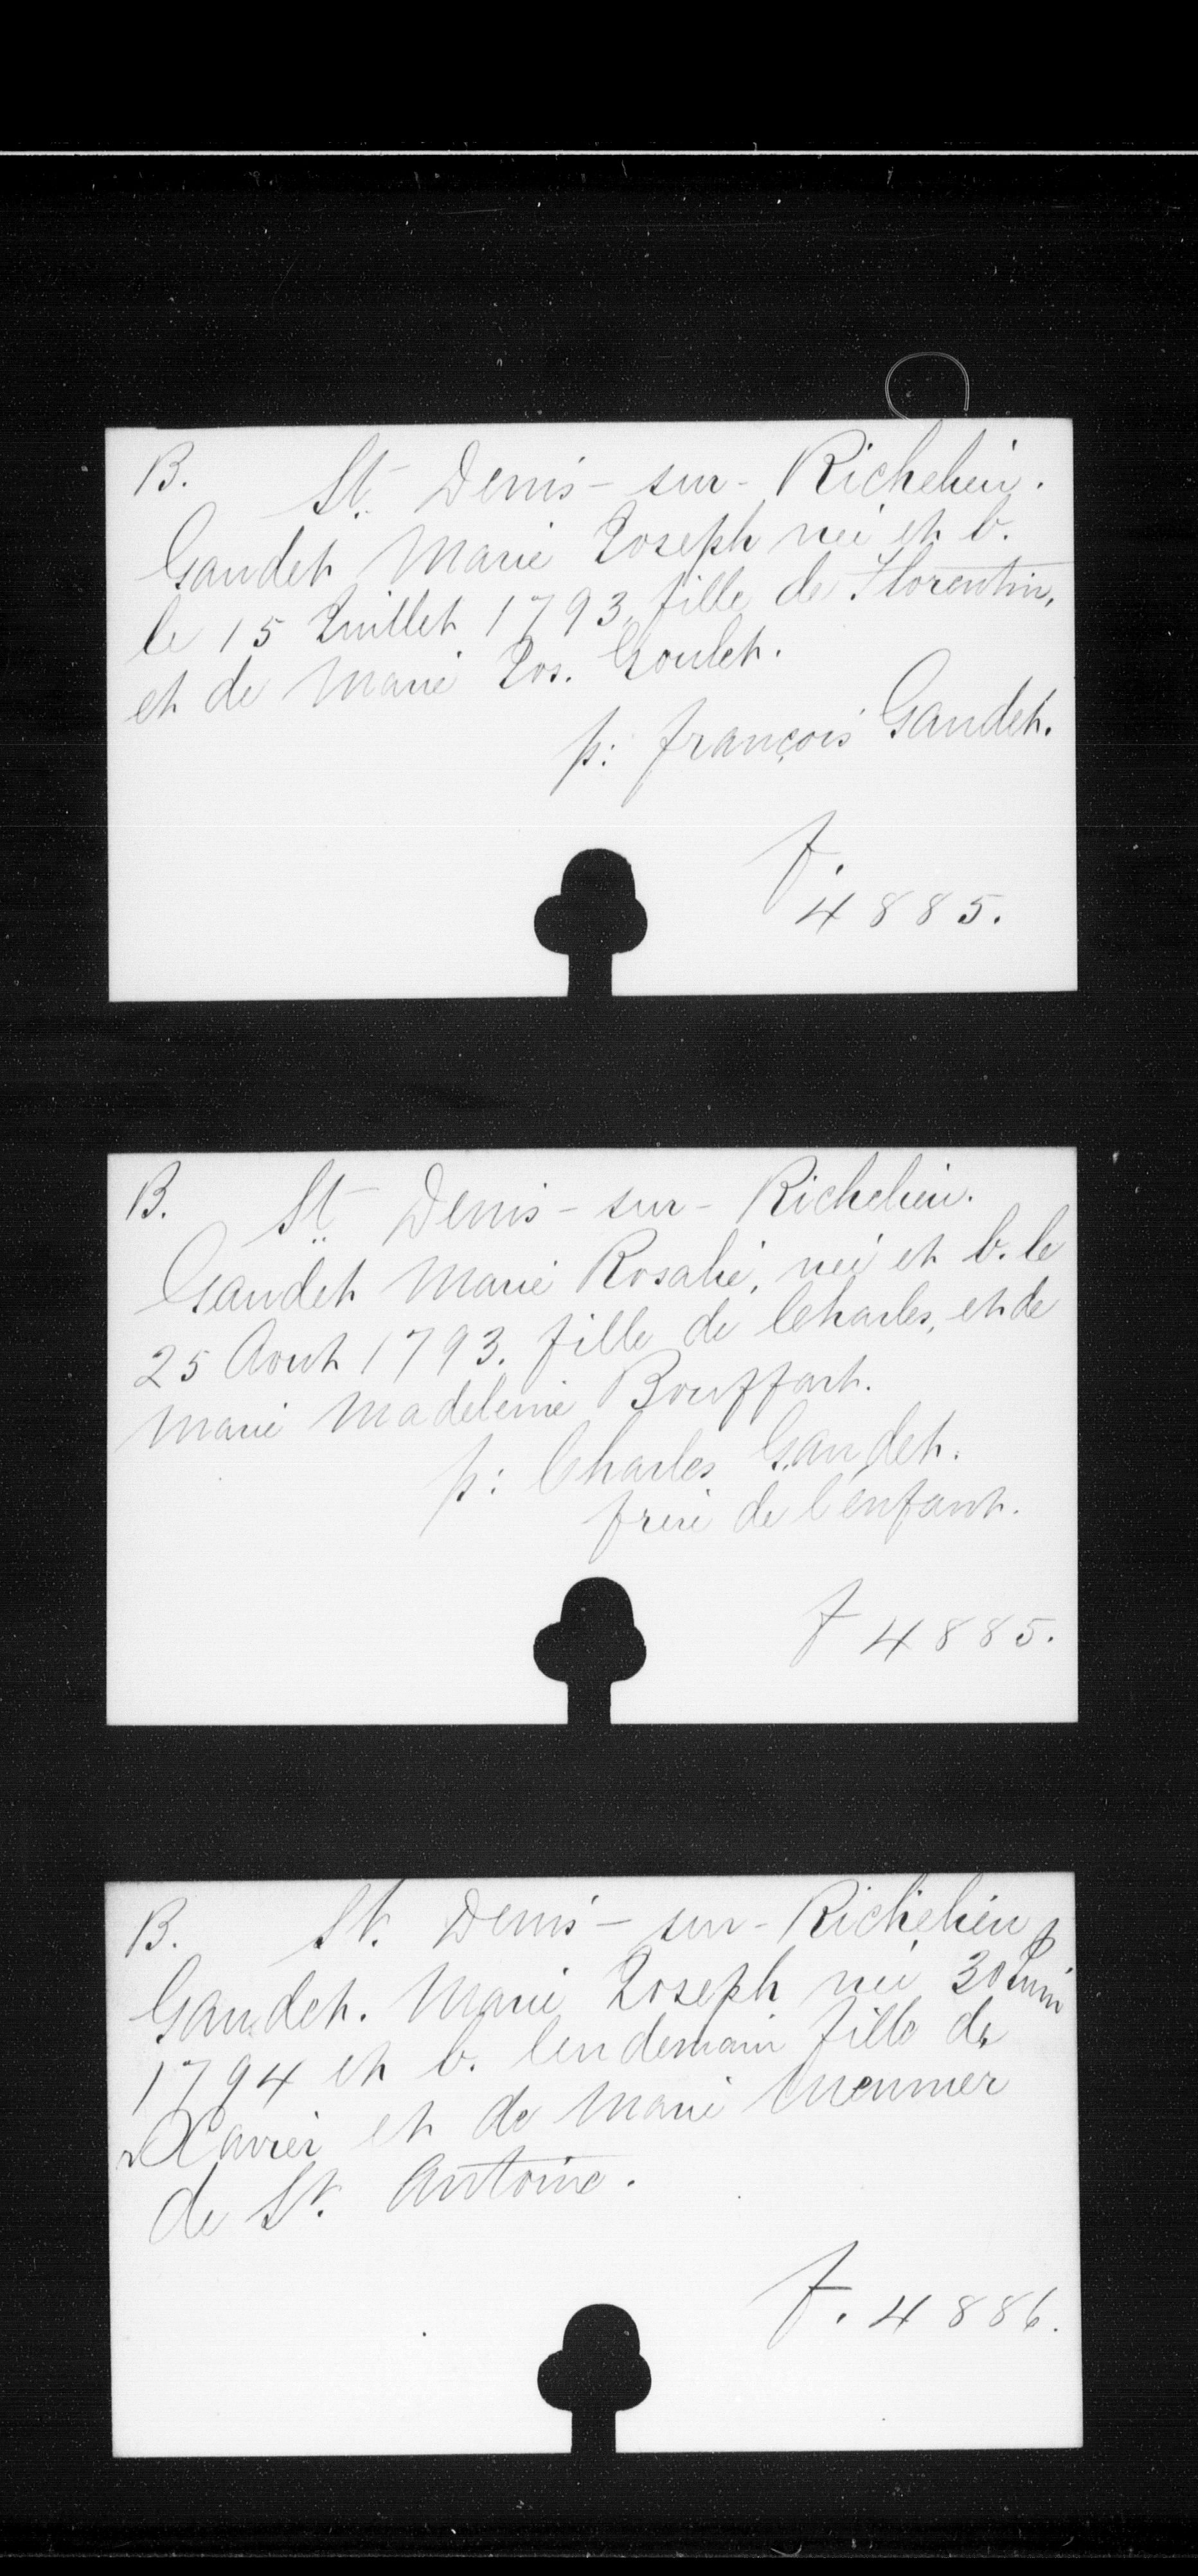 B. St. Denis-sur-Richelieu.
Gaudet Marie Joseph née et b.
le 15 Juillet 1793, fille de Florentin,
et de Marie Jos. Goulet.
p: françois Gaudet.
f.
4885.
B. St Denis-sur-Richelieu.
Gaudet Marie Rosalie, née et b. le
25 Aout 1793. fille de Charles, et de
Marie Madeleine Bouffart.
p: Charles Gaudet.
frere de l'enfant.
f 4885.
B. St. Denis-sur-Richelieu
Gaudet. Marie Joseph née 30 Juin
1794 et b. lendemain fille de
Xavier et de Marie Meunier
de St. Antoine.
f. 4886.